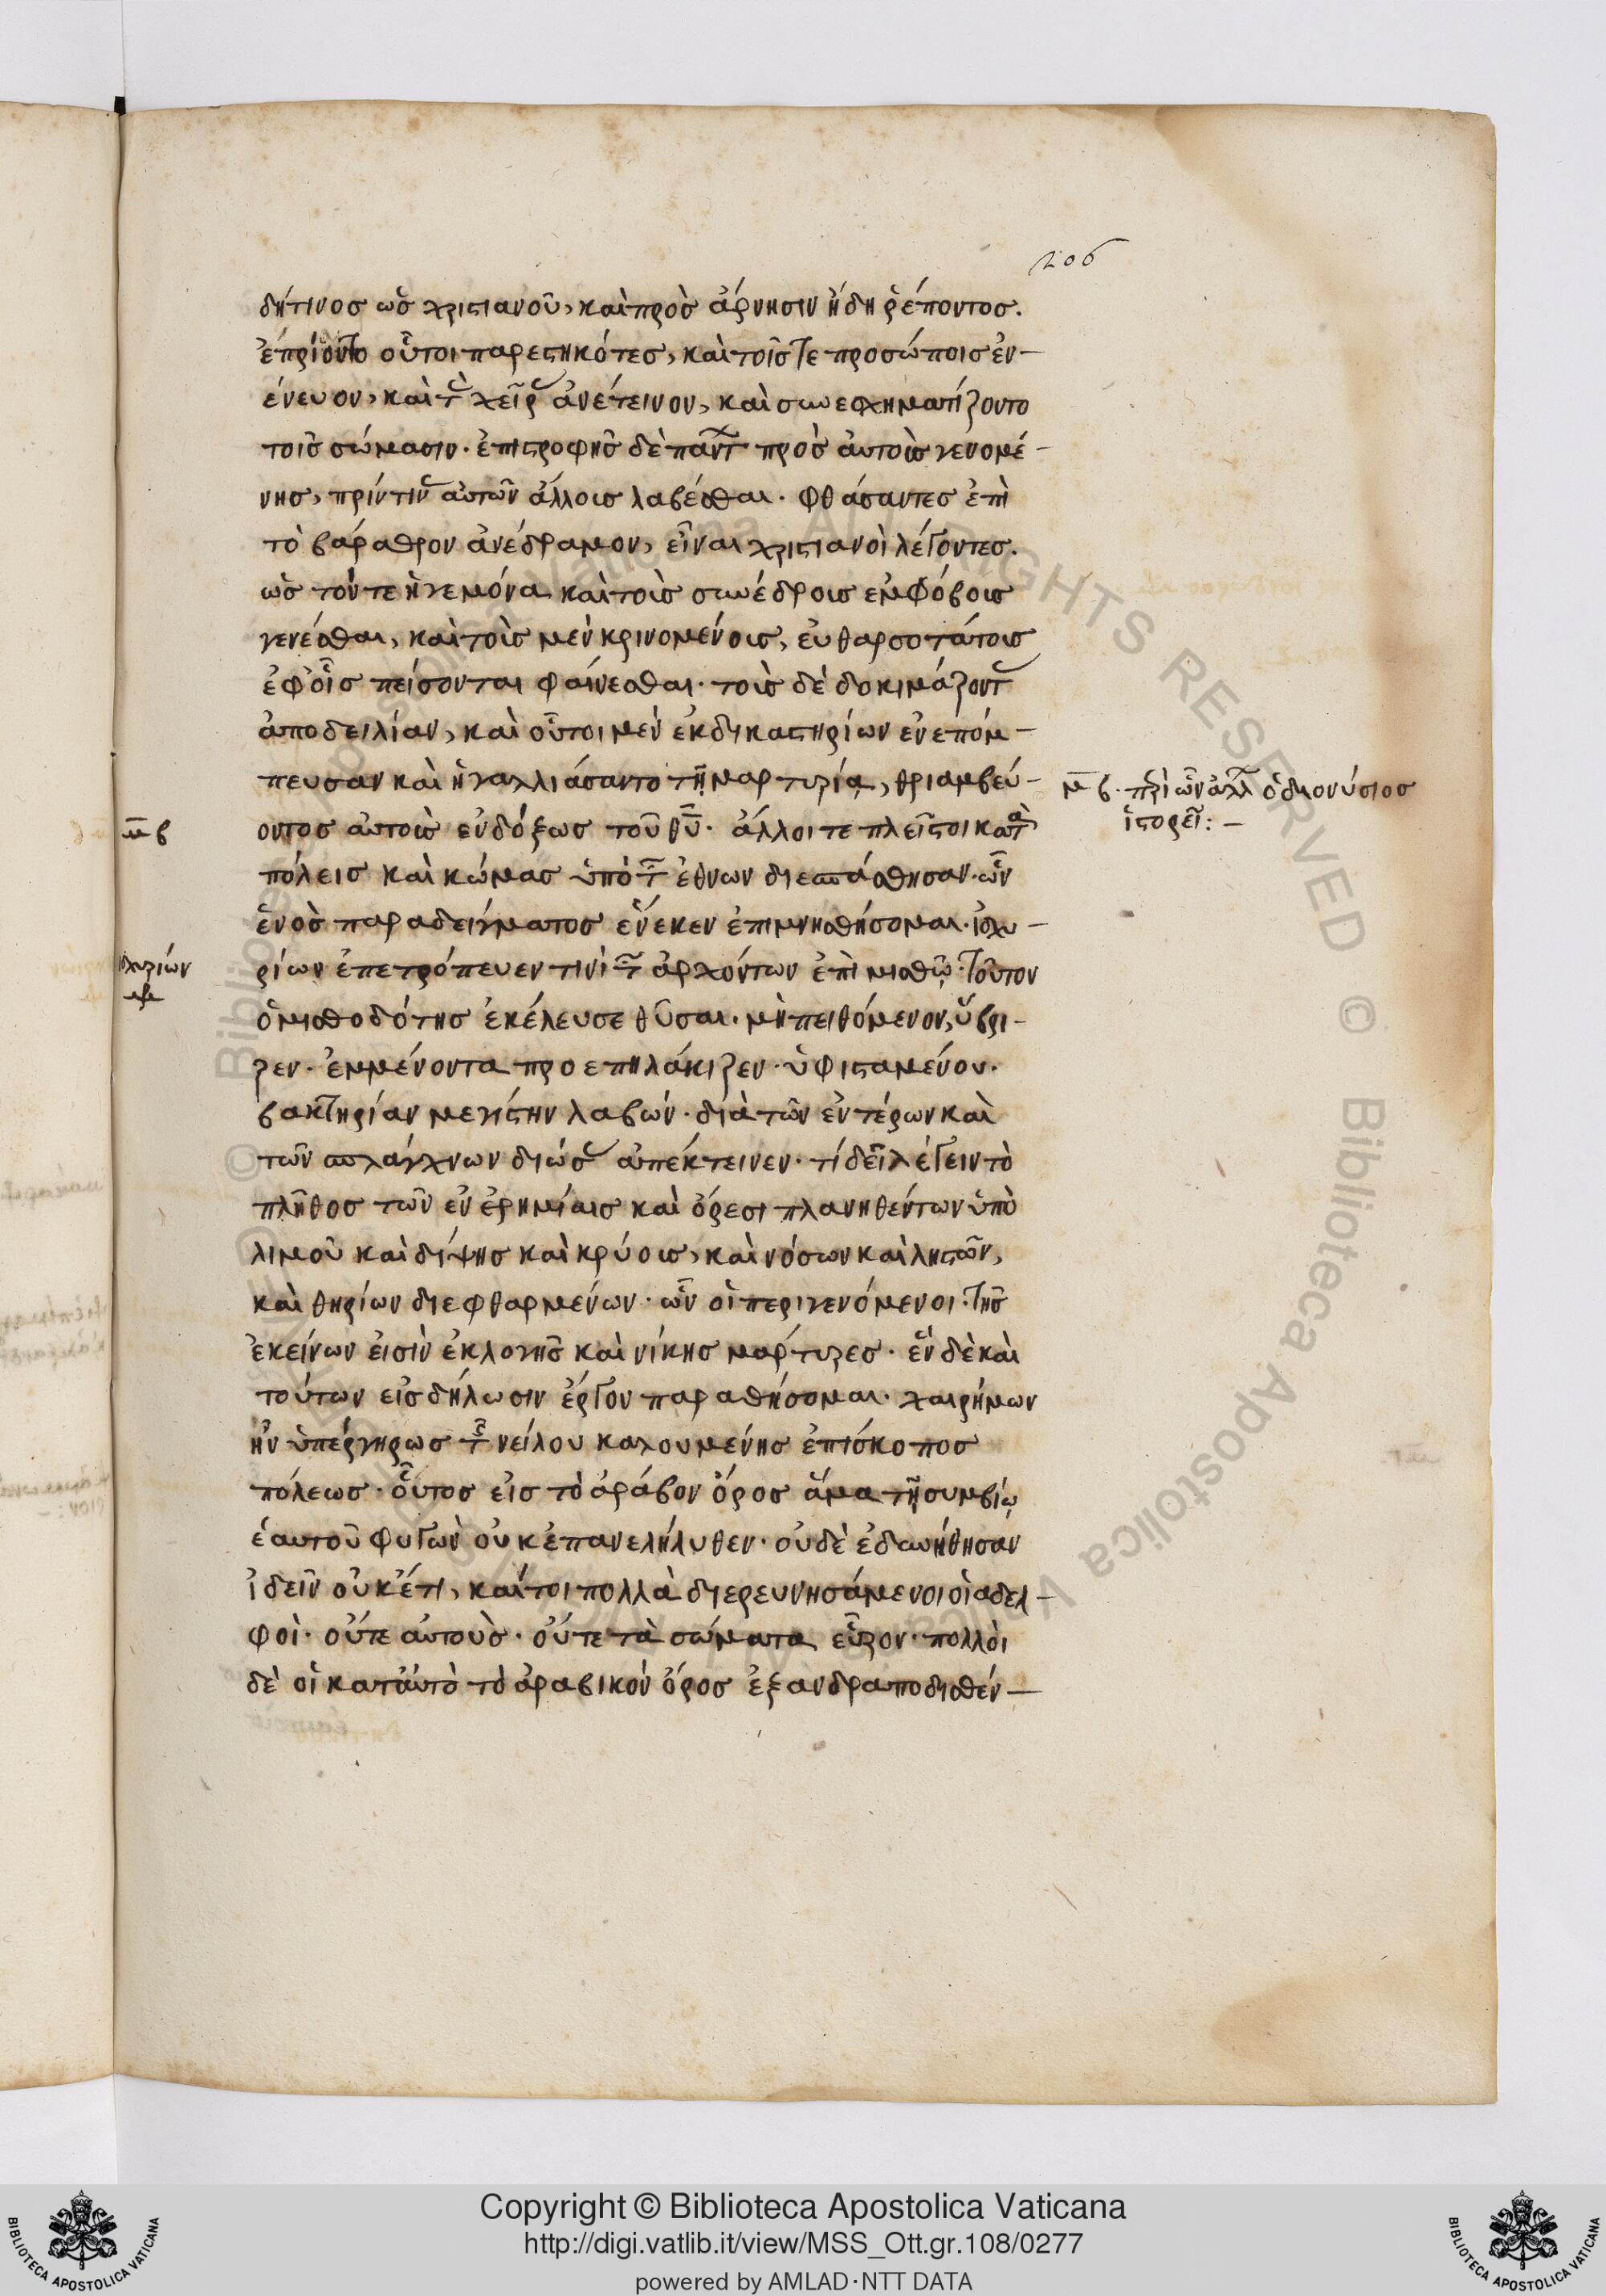 206
δή τινος ὡς χριστιανοῦ, καὶ πρὸς ἄρνησιν ἤδη ῥέποντος.
ἐπρίοντο οὗτοι παρεστηκότες, καὶ τοῖς τε προσώποις ἐν-
ένευον, καὶ τὰς χεῖρας ἀνέτεινον, καὶ συνεσχηματίζοντο
τοῖς σώμασιν. ἐπιστροφῆς δὲ πάντων πρὸς αὐτοὺς γενομέ-
νης, πρίν τινας αὐτῶν ἄλλους λαβέσθαι. φθάσαντες ἐπὶ
τὸ βάραθρον ἀνέδραμον, εἶναι χριστιανοὶ λέγοντες.
ὡς τόν τε ἡγεμόνα καὶ τοὺς συνέδρους ἐμφόβους
γενέσθαι, καὶ τοὺς μὲν κρινομένους, εὐθαρσοτάτους
ἐφ' οἷς πείσονται φαίνεσθαι. τοὺς δὲ δοκιμάζοντας
ἀποδειλίαν, καὶ οὗτοι μὲν ἐκ δικαστηρίων ἐνεπόμ-
πευσαν καὶ ἠγαλλιάσαντο τῇ μαρτυρίᾳ, θριαμβεύ-
οντος αὐτοὺς ἐνδόξως τοῦ θυ. ἄλλοι τε πλεῖστοι κατὰ
πόλεις καὶ κώμας ὑπὸ τῶν ἐθνων διεσπάσθησαν. ὧν
ἑνὸς παραδείγματος ἕνεκεν ἐπιμνησθήσομαι. ἰσχυ-
ρίων ἐπετρόπευεν τινὶ τῶν ἀρχόντων ἐπὶ μισθῷ. τοῦτον
ὁ μισθοδότης ἐκέλευσε θῦσαι. μὴ πειθόμενον, ὕβρι-
ζεν. ἐμμένοντα προεπηλάκιζεν. ὑφισταμένου.
βακτηρίαν μεγίστην λαβών. διὰ τῶν ἐντέρων καὶ
τῶν σπλάγχνων διώσας ἀπέκτεινεν. τί δεῖ λέγειν τὸ
πλῆθος τῶν ἐν ἐρημίαις καὶ ὄρεσι πλανηθέντων ὑπὸ
λιμοῦ καὶ δίψης καὶ κρύους, καὶ νόσων καὶ λῃστῶν,
καὶ θηρίων διεφθαρμένων. ὧν οἱ περιγενόμενοι. τῆς
ἐκείνων εἰσὶν ἐκλογῆς καὶ νίκης μάρτυρες. ἓν δὲ καὶ
τούτων εἰς δήλωσιν ἔργον παραθήσομαι. χαιρήμων
ἦν ὑπέργηρως τῆς νείλου καλουμένης ἐπίσκοπος
πόλεως. οὗτος εἰς τὸ ἀράβον ὄρος ἅμα τῇ συμβίῳ
ἑαυτοῦ φυγὼν οὐκ ἐπανελήλυθεν. οὐδὲ ἐδυνήθησαν
ἰδεῖν οὐκέτι, καίτοι πολλὰ διερευνησάμενοι οἱ αδελ-
φοὶ. οὔτε αὐτοὺς. οὔτε τὰ σώματα εὗρον. πολλοὶ
δὲ οἱ κατ' αὐτὸ τὸ ἀραβικὸν ὄρος ἐξανδραποδισθέν-
μβ
ἰσχυρίων
μβ. περὶ ὧν ἄλλων ὁ διονύσιος
ἱστορεῖ: -
Copyright © Biblioteca Apostolica Vaticana
http://digi.vatlib.it/view/MSS_Ott.gr.108/0277
powered by AMLAD·NTT DATA
BIBLIOTECA APOSTOLICA VATICANA
BIBLIOTECA APOSTOLICA VATICANA